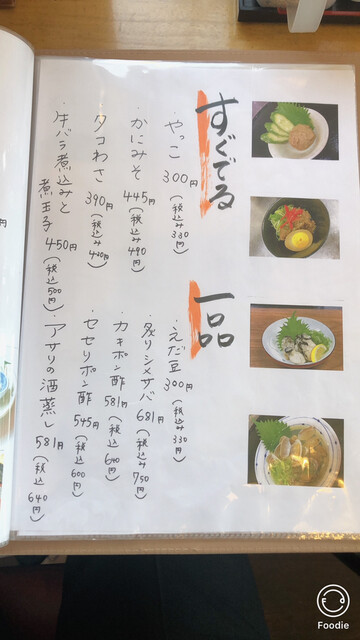 すぐでる
一品
・やっこ 300円(税込み330円)
・かにみそ 445円(税込み490円)
・タコわさ 390円(税込み430円)
・牛バラ煮込みと
煮玉子 450円(税込500円)
・えだ豆 300円(税込み330円)
・炙りシメサバ 681円(税込み750円)
・カキポン酢 581円(税込640円)
・セセリポン酢 545円(税込600円)
・アサリの酒蒸し 581円(税込640円)
Foodie